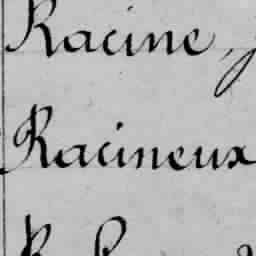 Racine,
Racineux